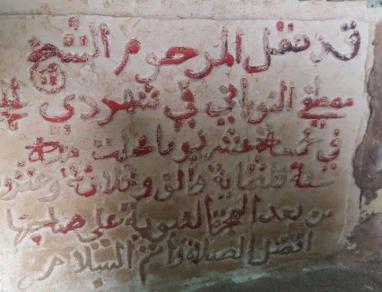 قد نقل المرحوم الشيخ
مصطفى النواتي في شهر ذي الحجة
في خمسة عشر يوما خلت منه
سنة وألف وثلاثة
من بعد الهجرة النبوية على صاحبها
افضل الصلاة واتم السلام